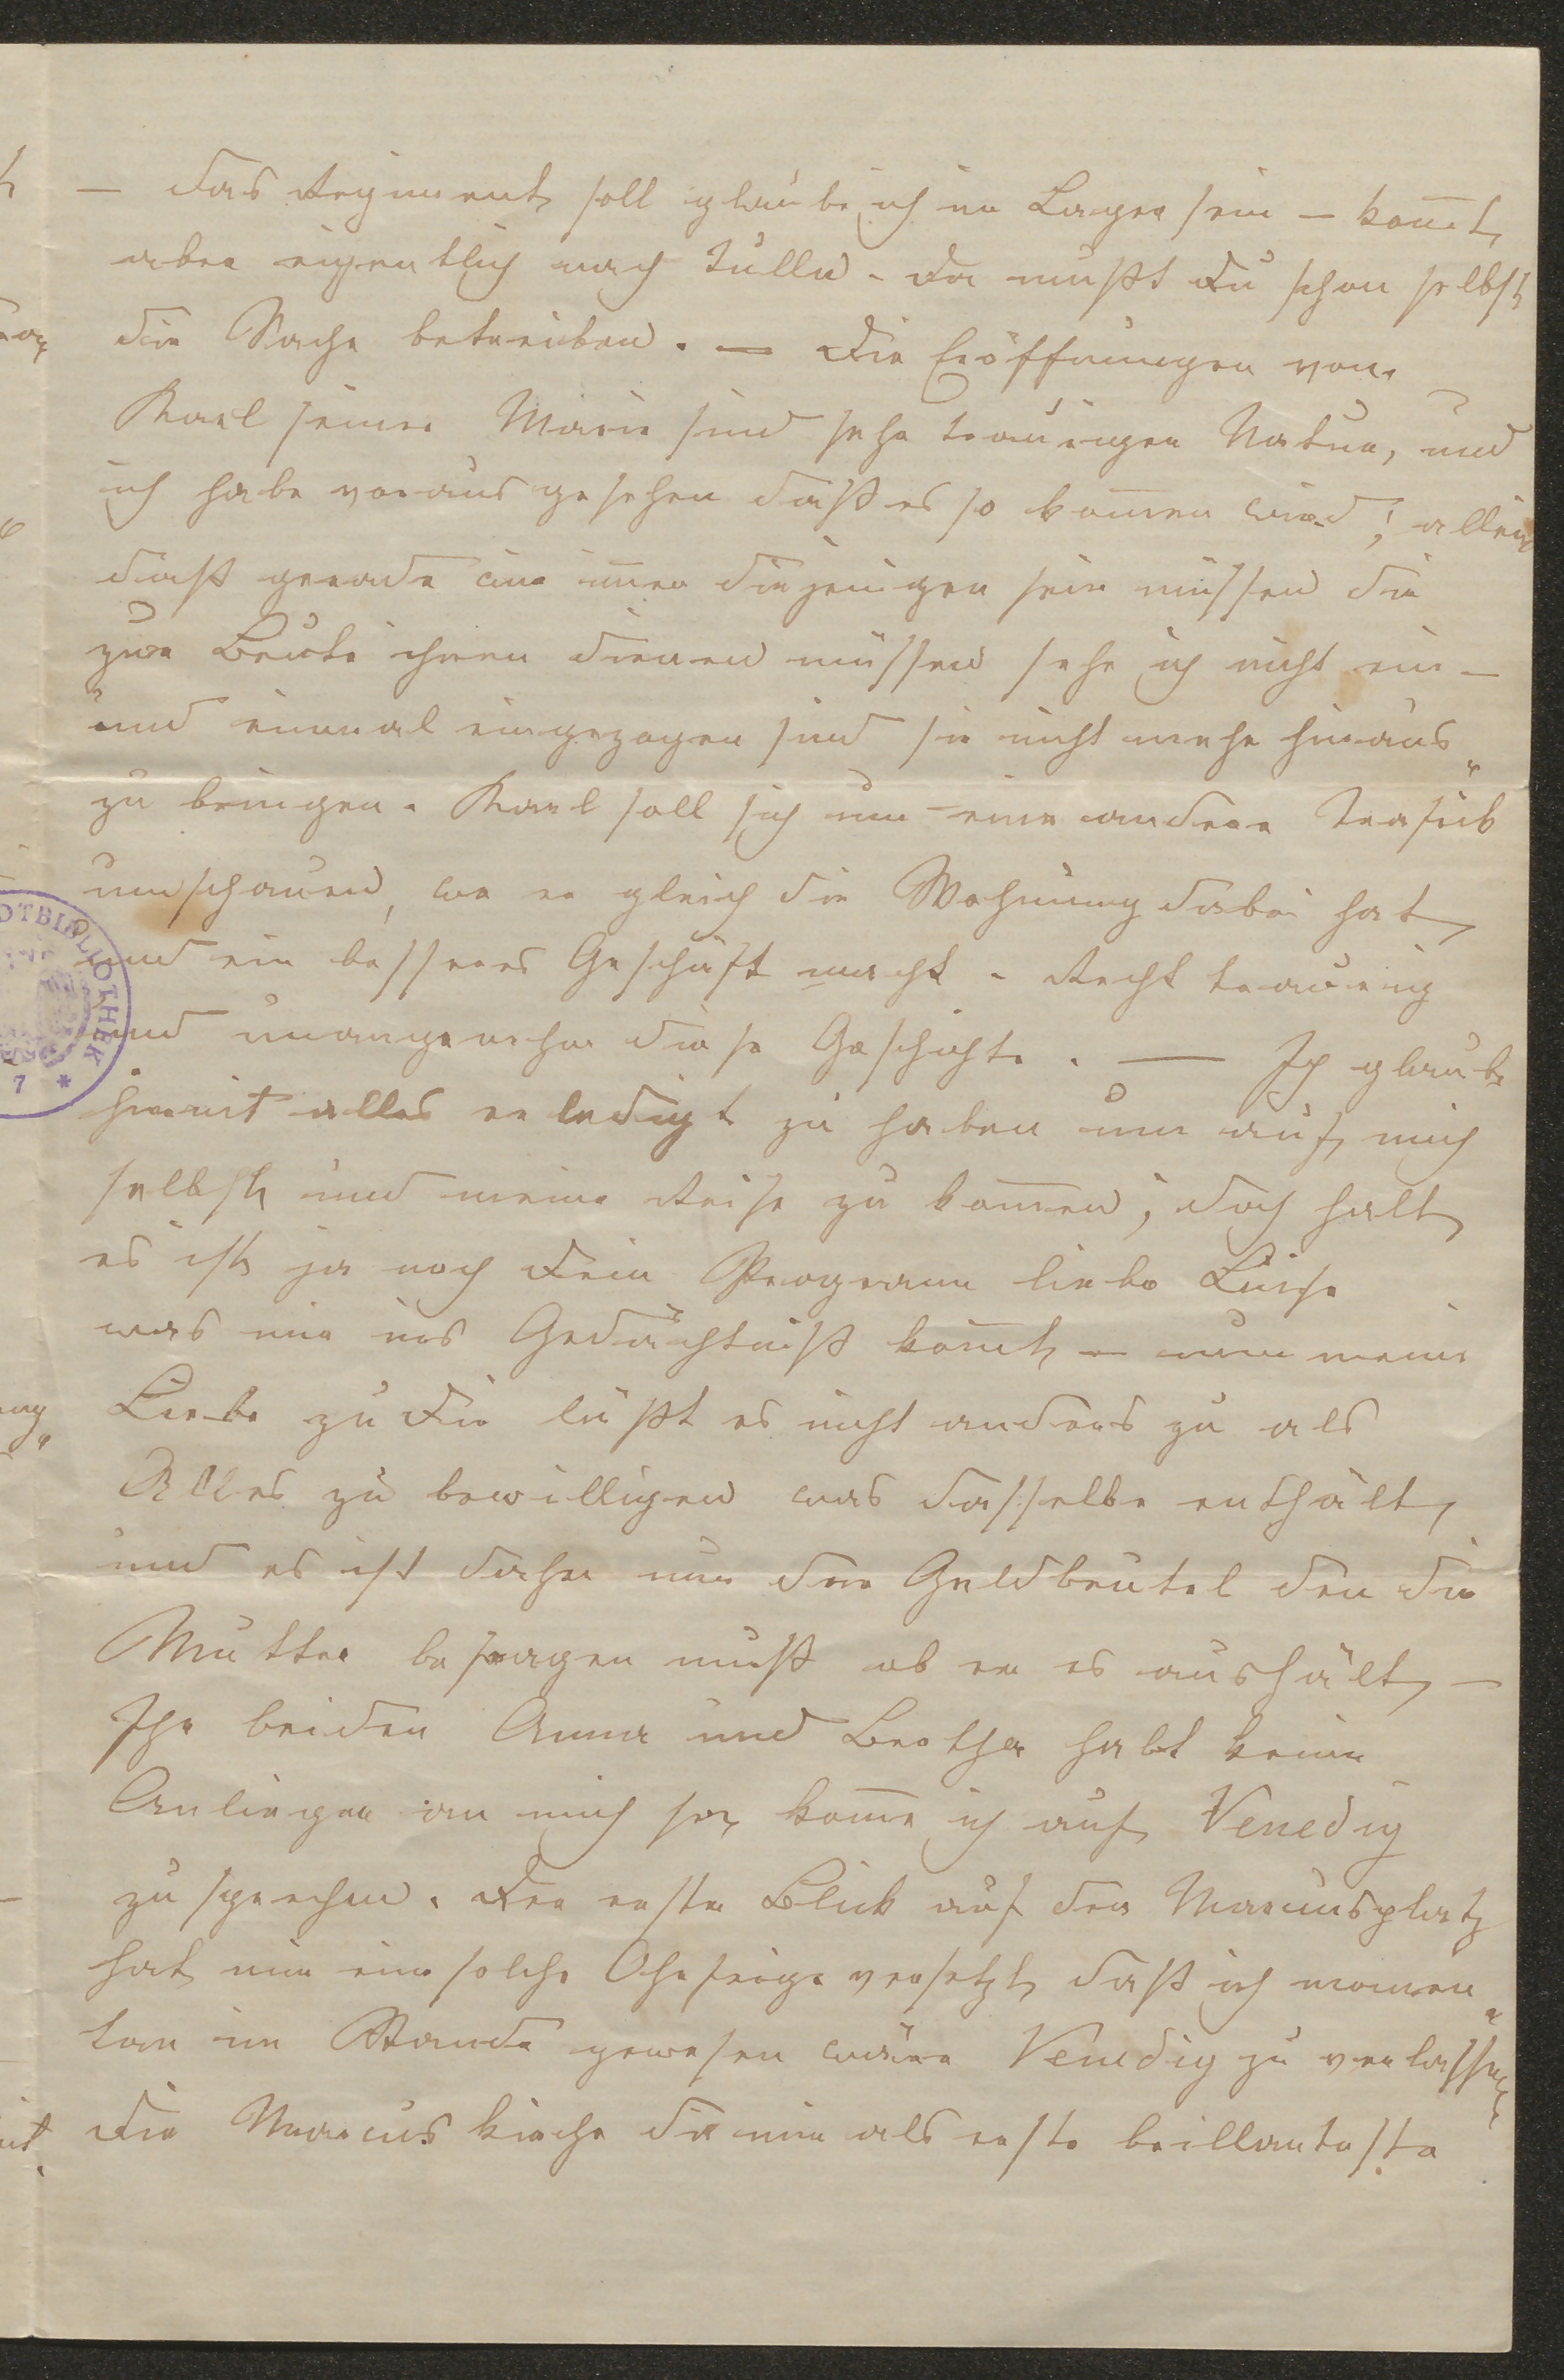 — das Regiment soll glaube ich im Lager sein — kom̄t
aber eigentlich nach Tulln. Da mußt Du schon selbst
die Sache betreiben. — Die Eröffnungen von
Karl seiner Marie sind sehr trauriger Natur, und
ich habe voraus gesehen daß es so kom̄en wird; allein
daß gerade wir im̄er diejenigen sein müssen die
zur Beute ihnen dienen müssen sehe ich nicht ein —
und einmal eingezogen sind sie nicht mehr hinaus„
zu bringen. Karl soll sich um eine andere Trafik
umschauen, wo er gleich die Wohnung dabei hat
und ein besseres Geschäft macht. Recht traurig
und unangenehm diese Geschichte. — Ich glaube
hiemit alles erledigt zu haben um auf mich
selbst und meine Reise zu kom̄en; doch halt
es ist ja noch Dein Programm liebe Luise
was mir ins Gedächtniß kom̄t — nun meine
Liebe zu Dir läßt es nicht anders zu als
Alles zu bewilligen was dasselbe enthält,
und es ist daher nur der Geldbeutel den die
Mutter befragen muß ob er es aushält, —
Ihr beiden Anna und Bertha habt keine
Anliegen an mich so kom̄e ich auf Venedig
zu sprechen. Der erste Blick auf den Marcusplatz
hat mir eine solche Ohrfeige versetzt, daß ich momen„
tan im Stande gewesen wäre Venedig zu verlassen
Die Marcus kirche die mir als erste brillanteste